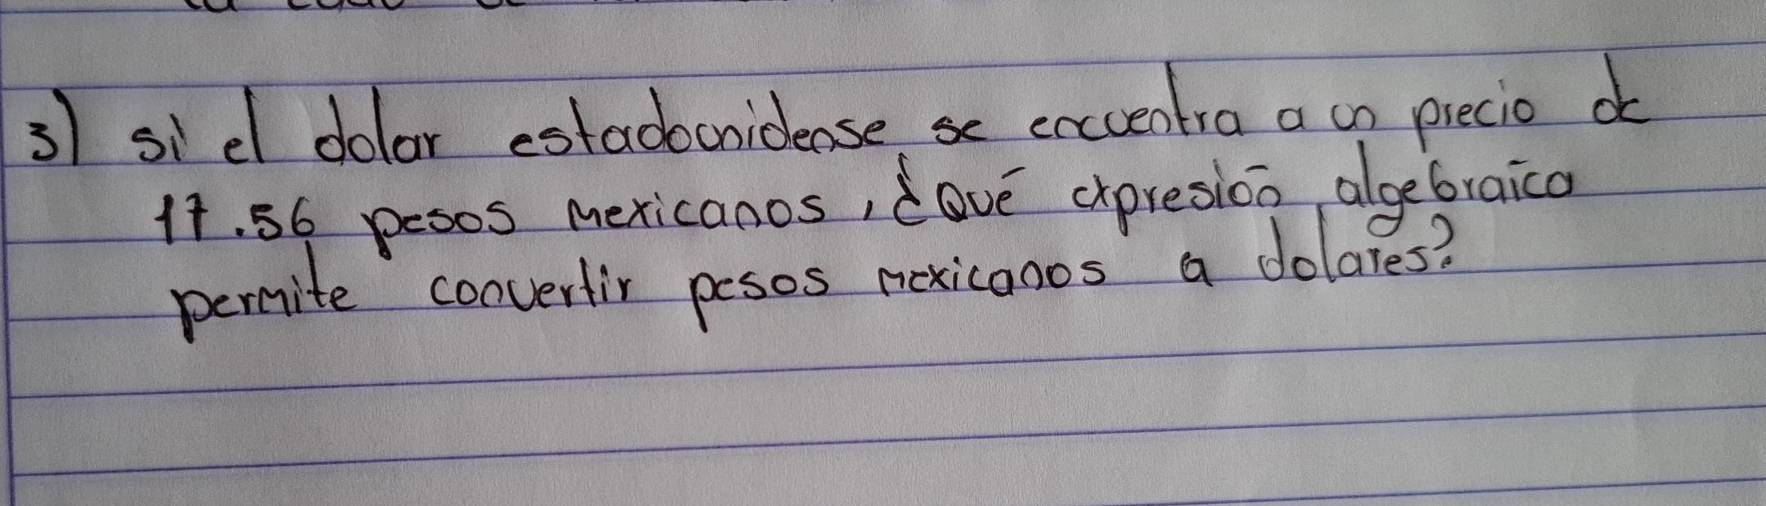 3) si el dolar estadounidense se encuentra a un precio de
17.56 pesos Mexicanos, ¿Qué expresión algebraica
permite convertir pesos mexicanos a dolares?